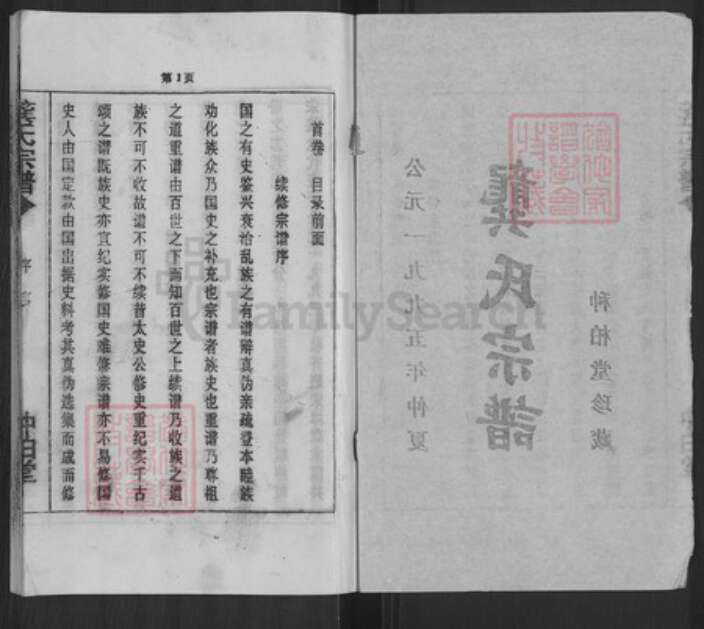 种柏堂珍藏
龚氏宗谱
公元一九九五年仲夏
第1页
首卷 目录前面
续修宗谱序
国之有史鉴兴衰治乱族之有谱辨真伪亲疏登本睦族
劝化族众乃国史之补充也宗谱者族史也重谱乃尊祖
之道重谱由百世之下而知百世之上续谱乃收族之道
族不可不收故谱不可不续昔太史公修史重纪实千古
颂之谱既族史亦宜纪实修国史难修宗谱亦不易修国
史人由国定款由国出据史料考其真伪选集而成而修
龚氏宗谱
种柏堂
FamilySearch